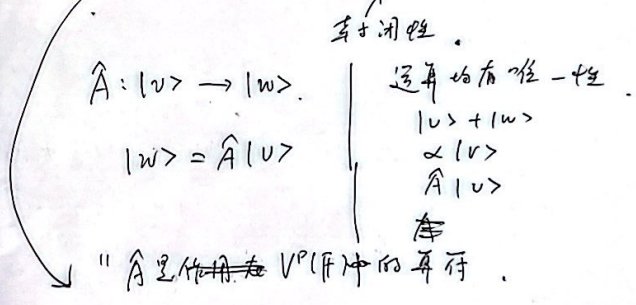 封闭性.
Â : |v> → |w>.
|w> = Â|v>
运算均有唯一性.
|v> + |w>
α|v>
Â|v>
"Â是 V^D(F)中的算符.